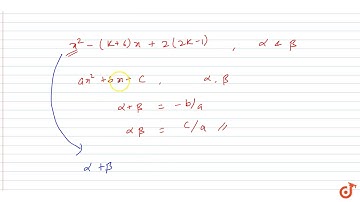 x² - (k+6)x + 2(2k-1) , α & β
ax² + bx + c , α, β
α+β = -b/a
αβ = c/a //
α+β